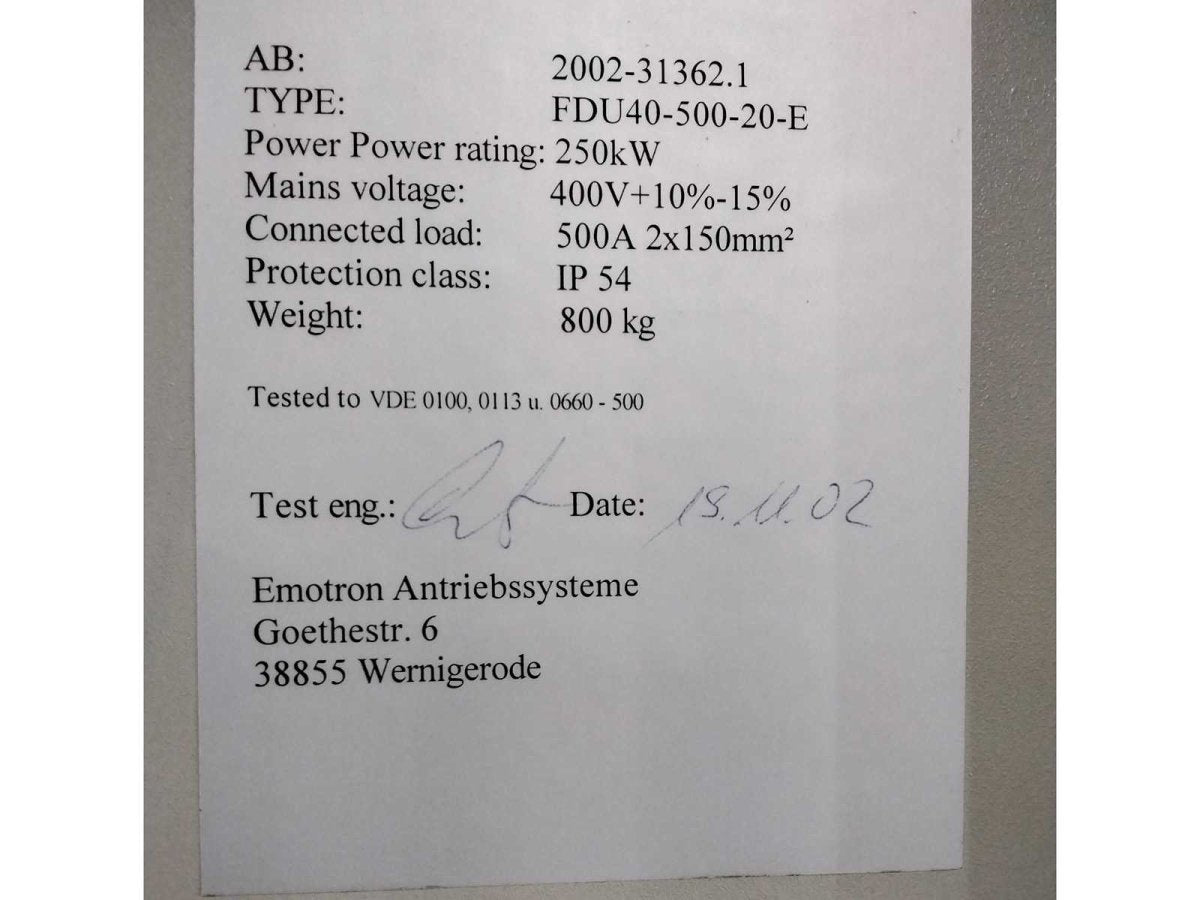 AB: 2002-31362.1
TYPE: FDU40-500-20-E
Power Power rating: 250kW
Mains voltage: 400V+10%-15%
Connected load: 500A 2x150mm²
Protection class: IP 54
Weight: 800 kg
Tested to VDE 0100, 0113 u. 0660 - 500
Test eng.: Date:
Emotron Antriebssysteme
Goethestr. 6
38855 Wernigerode